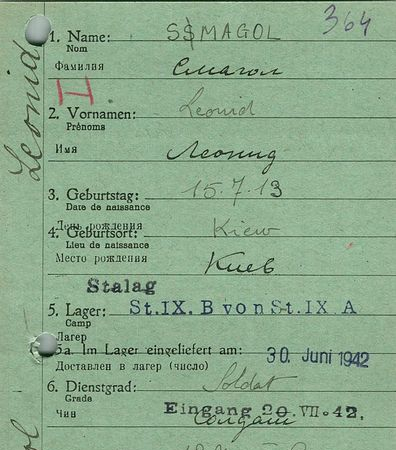 364
1. Name: SSMAGOL
Nom
Фамилия Смагол
2. Vornamen: Leonid
Prénoms
Имя Леонид
3. Geburtstag: 15.7.13
Date de naissance
День рождения
4. Geburtsort: Kiew
Lieu de naissance
Место рождения Киев
Stalag
5. Lager: St.IX. B von St.IX A
Camp
Лагер
5a. Im Lager eingeliefert am: 30. Juni 1942
Доставлен в лагер (число)
6. Dienstgrad: Soldat
Grade Eingang 20. VII. 42.
Чин Солдат
Leonid